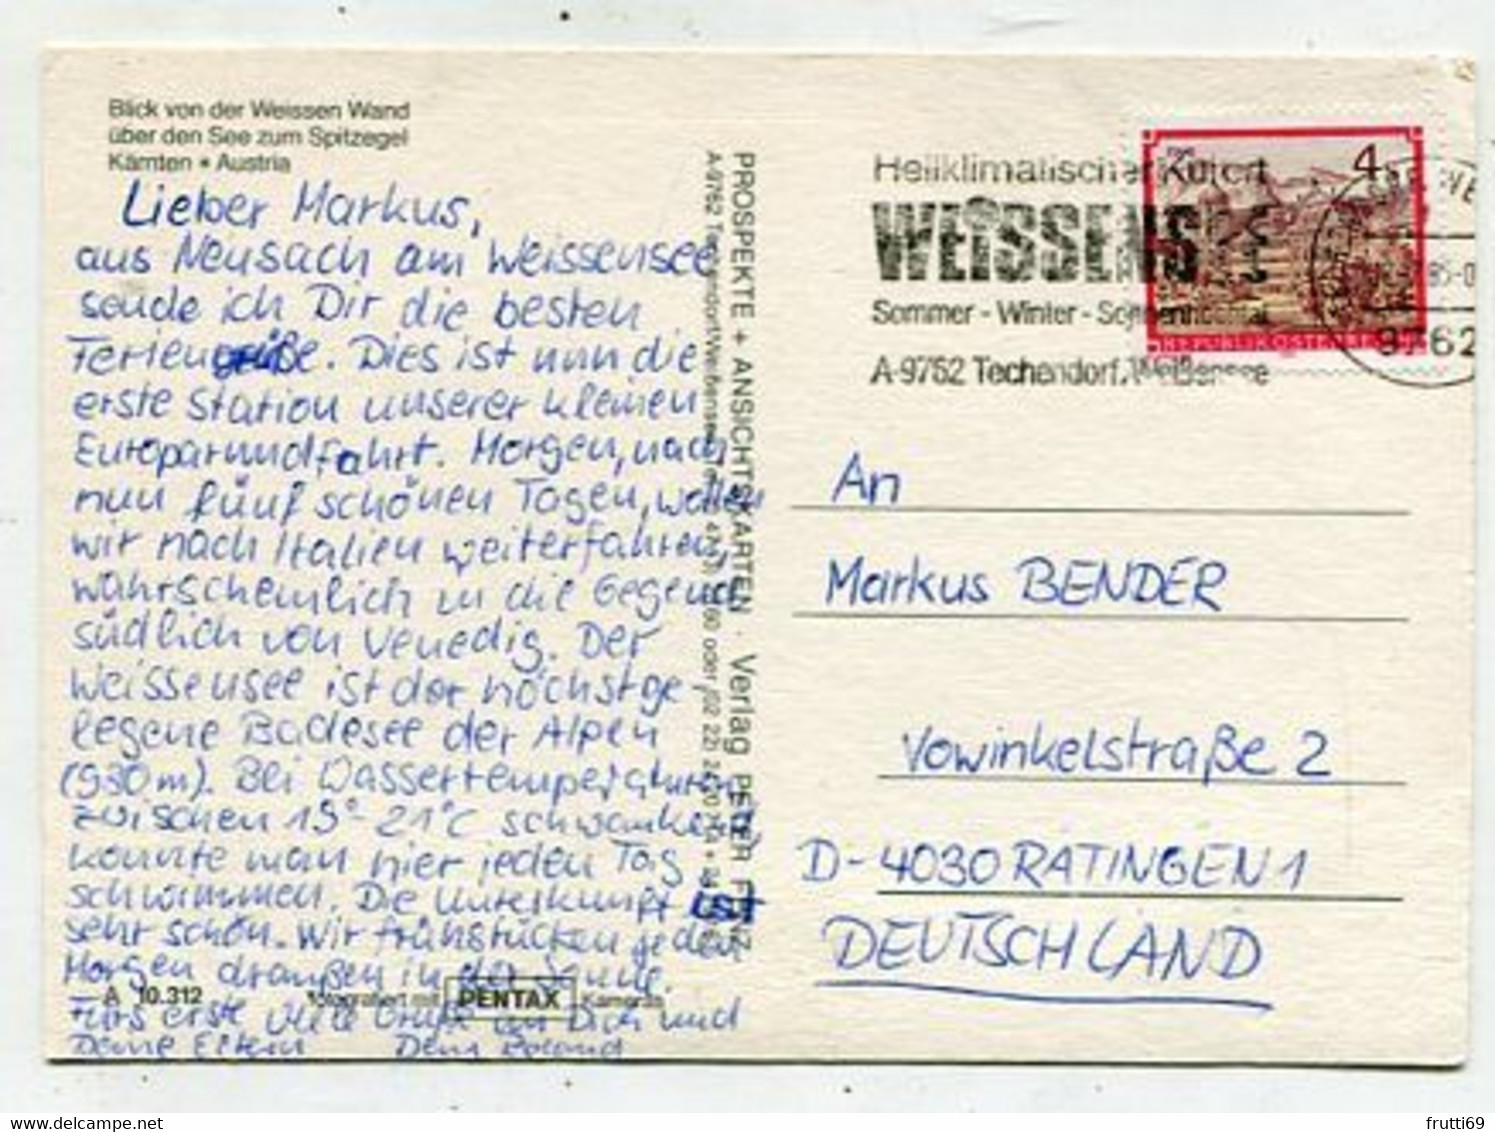 Blick von der Weissen Wand
über den See zum Spitzegel
Kärnten • Austria
Lieber Markus,
aus Neusach am Weissensee
sende ich Dir die besten
Feriengrüße. Dies ist nun die
erste Station unserer kleinen
Europarundfahrt. Morgen, nach
nun fünf schönen Tagen, wollen
wir nach Italien weiterfahren,
wahrscheinlich in die Gegend
südlich von Venedig. Der
Weissensee ist der höchstge
legene Badesee der Alpen
(930m). Bei Wassertemperaturen
zwischen 19°-21°C schwankend,
konnte man hier jeden Tag
schwimmen. Die Unterkunft ist
sehr schön. Wir frühstücken jeden
Morgen draußen in der Sonne.
Fürs erste viele Grüße an Dich und
Deine Eltern Dein Roland
A 10.312 fotografiert mit PENTAX Kameras
PROSPEKTE + ANSICHTSKARTEN · Verlag PETER FRANZ
A-9762 Techendorf/Weißensee
oder (02 22)
Heilklimatischer Kurort
WEISSENSEE
Sommer - Winter - Sonnenhochtal
A-9762 Techendorf, Weißensee
4
REPUBLIK ÖSTERREICH
9762
An
Markus BENDER
Vowinkelstraße 2
D-4030 RATINGEN 1
DEUTSCHLAND
delcampe.net
frutti69